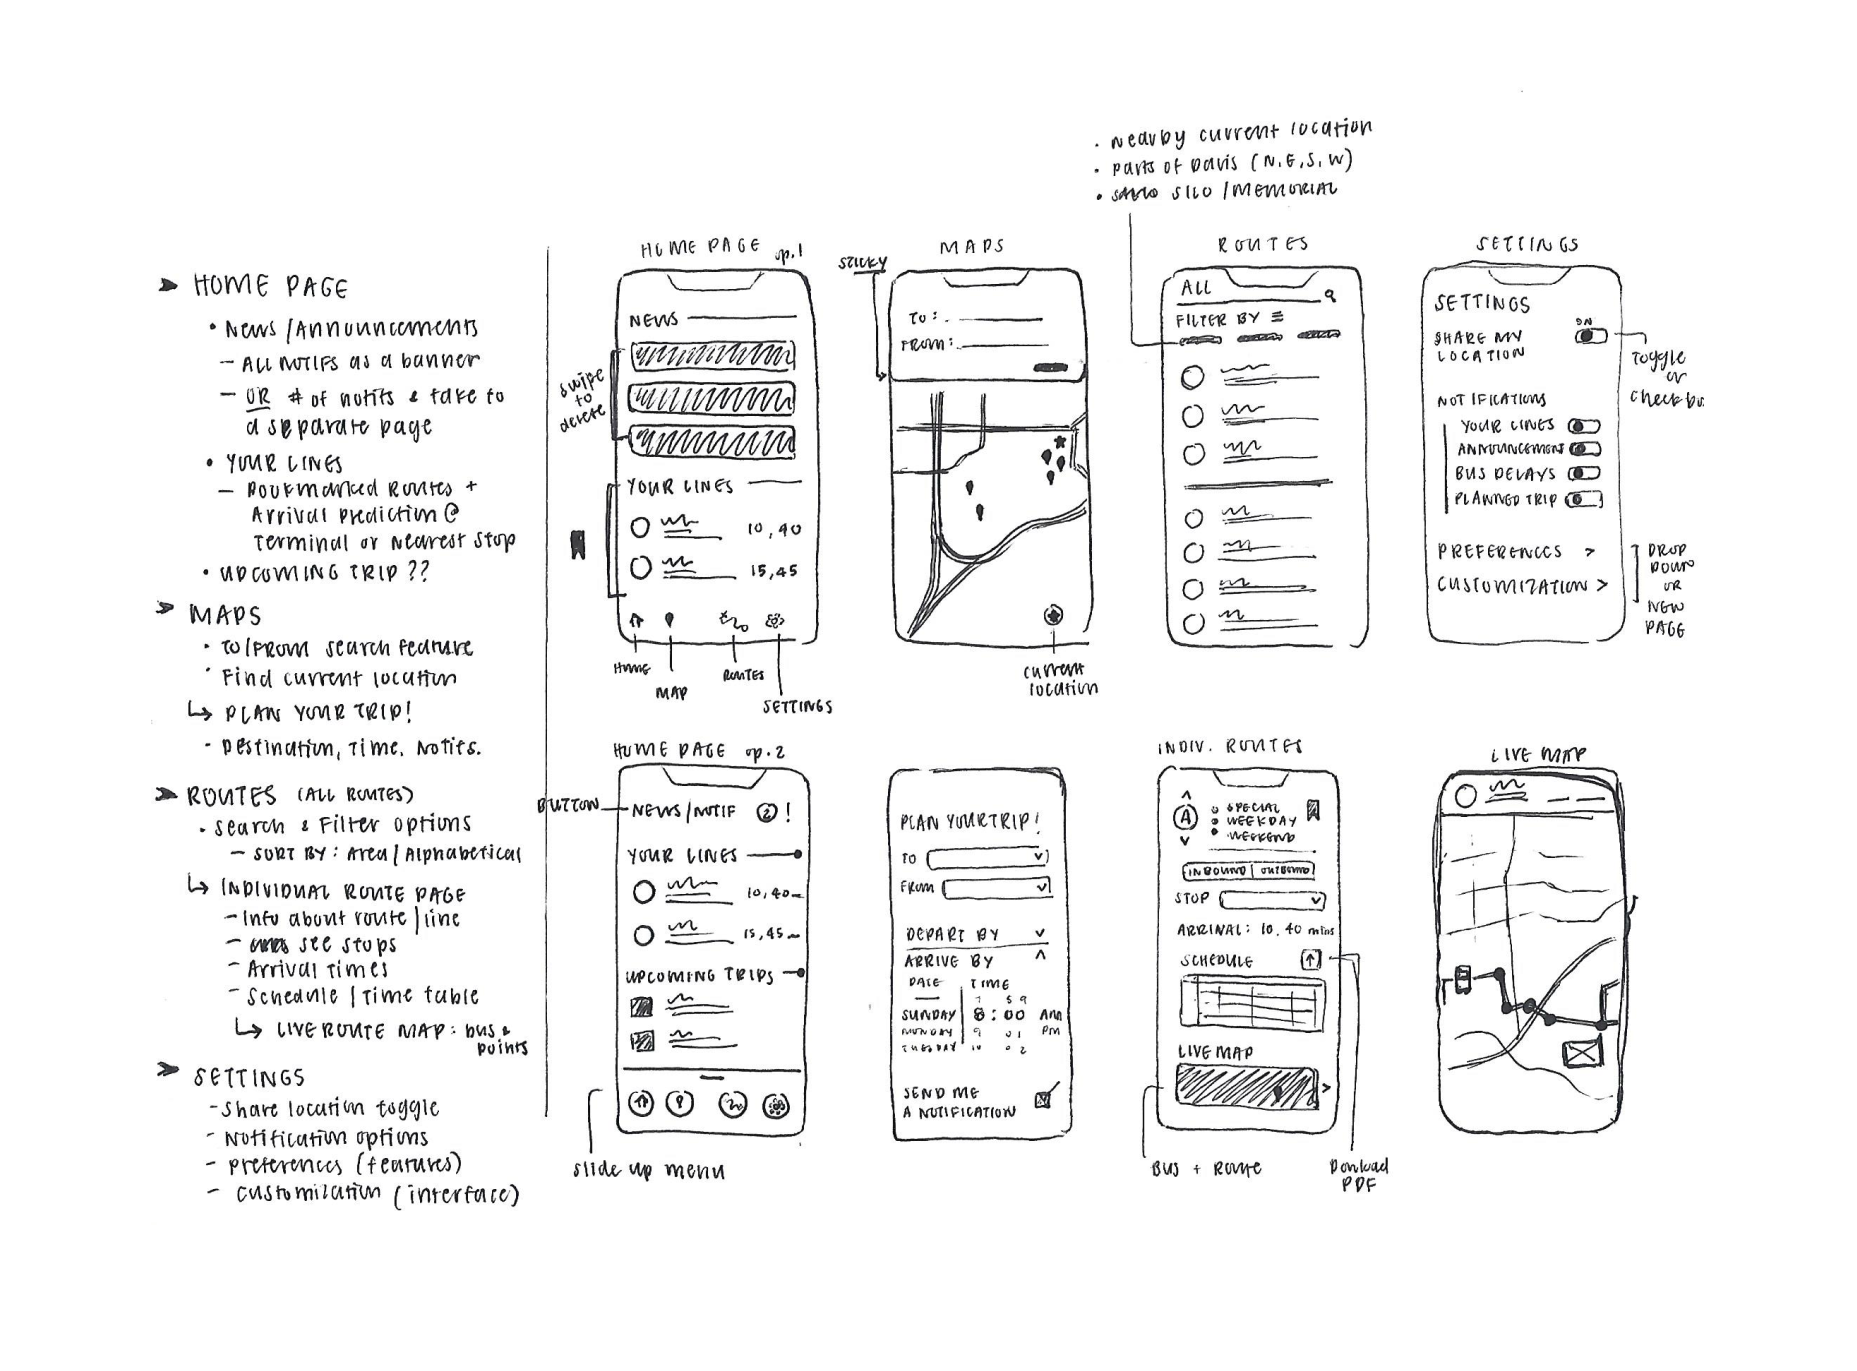 HOME PAGE
• News/Announcements
– ALL NOTIFS as a banner
– OR # of notifs & take to
a separate page
• YOUR LINES
– Bookmarked Routes +
Arrival prediction @
Terminal or Nearest Stop
• UPCOMING TRIP ??
MAPS
• TO/FROM search feature
• Find current location
↳ PLAN YOUR TRIP!
- Destination, Time, Notifs.
ROUTES (ALL ROUTES)
• Search & Filter options
– SORT BY: Area/Alphabetical
↳ INDIVIDUAL ROUTE PAGE
– Info about route/line
– see stops
– Arrival Times
– Schedule/Time table
↳ LIVE ROUTE MAP: bus &
points
SETTINGS
- Share location toggle
- Notification options
- preferences (features)
- customization (interface)
HOME PAGE op.1
NEWS
swipe
to
delete
YOUR LINES
10, 40
15, 45
HOME
MAP
ROUTES
SETTINGS
MAPS
STICKY
TO:
FROM:
current
location
• Nearby current location
• parts of Davis (N, E, S, W)
• SILO / MEMORIAL
ROUTES
ALL
FILTER BY
SETTINGS
SETTINGS
SHARE MY
LOCATION
ON
Toggle
or
NOTIFICATIONS
YOUR LINES
ANNOUNCEMENT
BUS DELAYS
PLANNED TRIP
PREFERENCES >
CUSTOMIZATION >
DROP
DOWN
OR
NEW
PAGE
HOME PAGE op.2
BUTTON
NEWS/NOTIF 2 !
YOUR LINES
10, 40
15, 45
UPCOMING TRIPS
slide up menu
PLAN YOUR TRIP!
TO
FROM
DEPART BY
ARRIVE BY
DATE TIME
7 59
SUNDAY 8:00 AM
MONDAY 9 01 PM
TUESDAY 10 02
SEND ME
A NOTIFICATION
INDIV. ROUTES
A
SPECIAL
WEEKDAY
WEEKEND
INBOUND | OUTBOUND
STOP
ARRIVAL: 10, 40 mins
SCHEDULE
LIVE MAP
BUS + ROUTE
Download
PDF
LIVE MAP